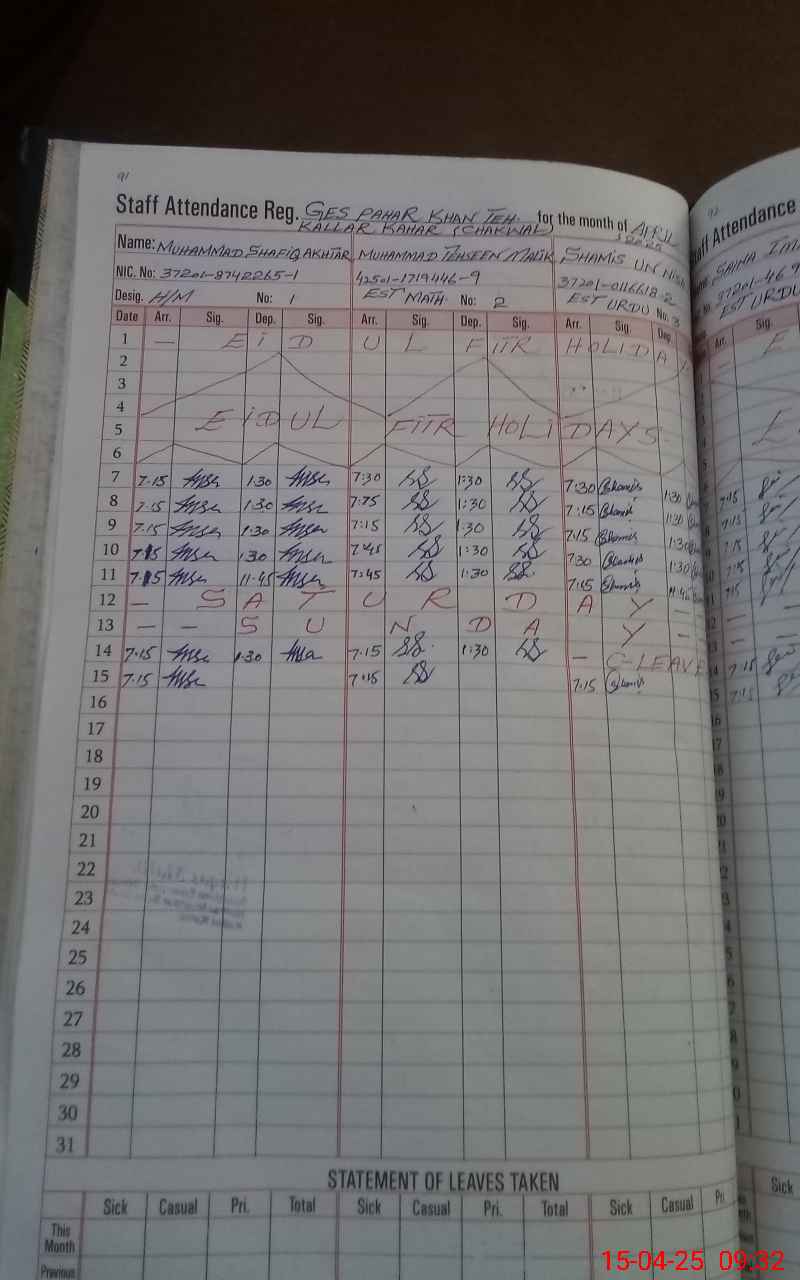 91
Staff Attendance Reg. GES PAHAR KHAN TEH. for the month of APRIL
KALLAR KAHAR (CHAKWAL)
Name: MUHAMMAD SHAFIQ AKHTAR MUHAMMAD TEHSEEN MALIK SHAMIS UN NISA
NIC. No: 37201-8742265-1 42501-1719446-9 37201-0116618-2
Desig. H/M No: 1 EST MATH No: 2 EST URDU No. 3
Date Arr. Sig. Dep. Sig. Arr. Sig. Dep. Sig. Arr. Sig. Dep.
1 — EID UL FITR HOLIDA
2
3
4
5 EIDUL FITR HOLIDAYS
6
7 7.15 1:30 7:30 1:30 7:30 Shamis 1:30
8 7.15 1:30 1:30 7:15 Shamis 1:30
9 7.15 1:30 7:15 1:30 7:15 Shamis 1:30
10 7.15 1:30 7:45 1:30 7:30 Shamis 1:30
11 7.15 11:45 7:45 1:30 7:15 Shamis 11:45
12 — SATURDAY —
13 — — SUNDAY —
14 7.15 1:30 7.15 1:30 — C-LEAVE
15 7.15 7:15 7:15 Shamis
16
17
18
19
20
21
22
23
24
25
26
27
28
29
30
31
STATEMENT OF LEAVES TAKEN
Sick Casual Pri. Total Sick Casual Pri. Total Sick Casual Pri.
This Month
Previous
92
Staff Attendance
SAIMA
37201-469
EST URDU
Arr. Sig.
7:15
7:15
7:15
7:15
7:15
7:15
7:15
Sick
15-04-25 09:32